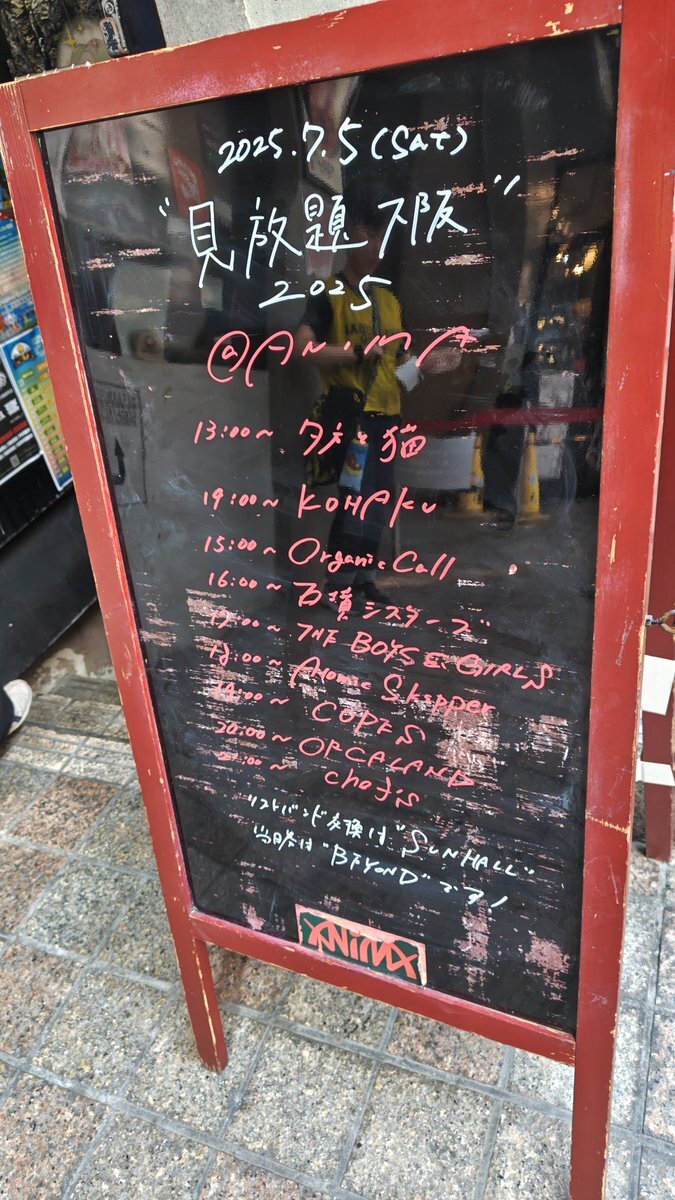 2025.7.5(Sat)
"見放題大阪"
2025
@ANIMA
13:00~ タデと猫
14:00~ KOHAKU
15:00~ Organic Call
16:00~ 石橋シスターズ
17:00~ THE BOYS&GIRLS
18:00~ Atomic Skipper
19:00~ COPES
20:00~ OFCALAND
21:00~ Chef's
リストバンド交換は"SUNHALL"
当日券は"BEYOND"です!
ANIMA